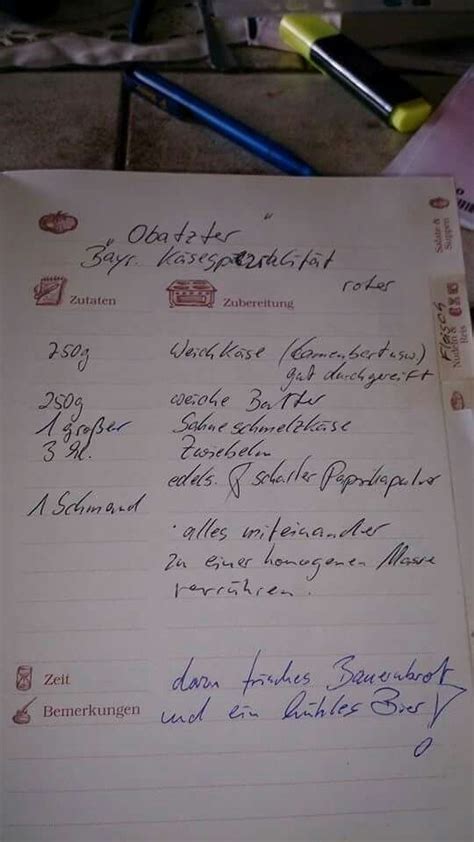 "Obatzter"
Bayr. Käsespezialität
roter
Zutaten
Zubereitung
250g Weichkäse (Camenbert usw.)
gut durchgereift
250g weiche Butter
1 großer Sahneschmelzkäse
3 kl. Zwiebeln
edels. & scharfer Paprikapulver
1 Schmand
· alles miteinander
zu einer homogenen Masse
verrühren.
Zeit
dazu frisches Bauernbrot
Bemerkungen
und ein kühles Bier!
Salate &
Suppen
Fleisch
Nudeln &
Reis